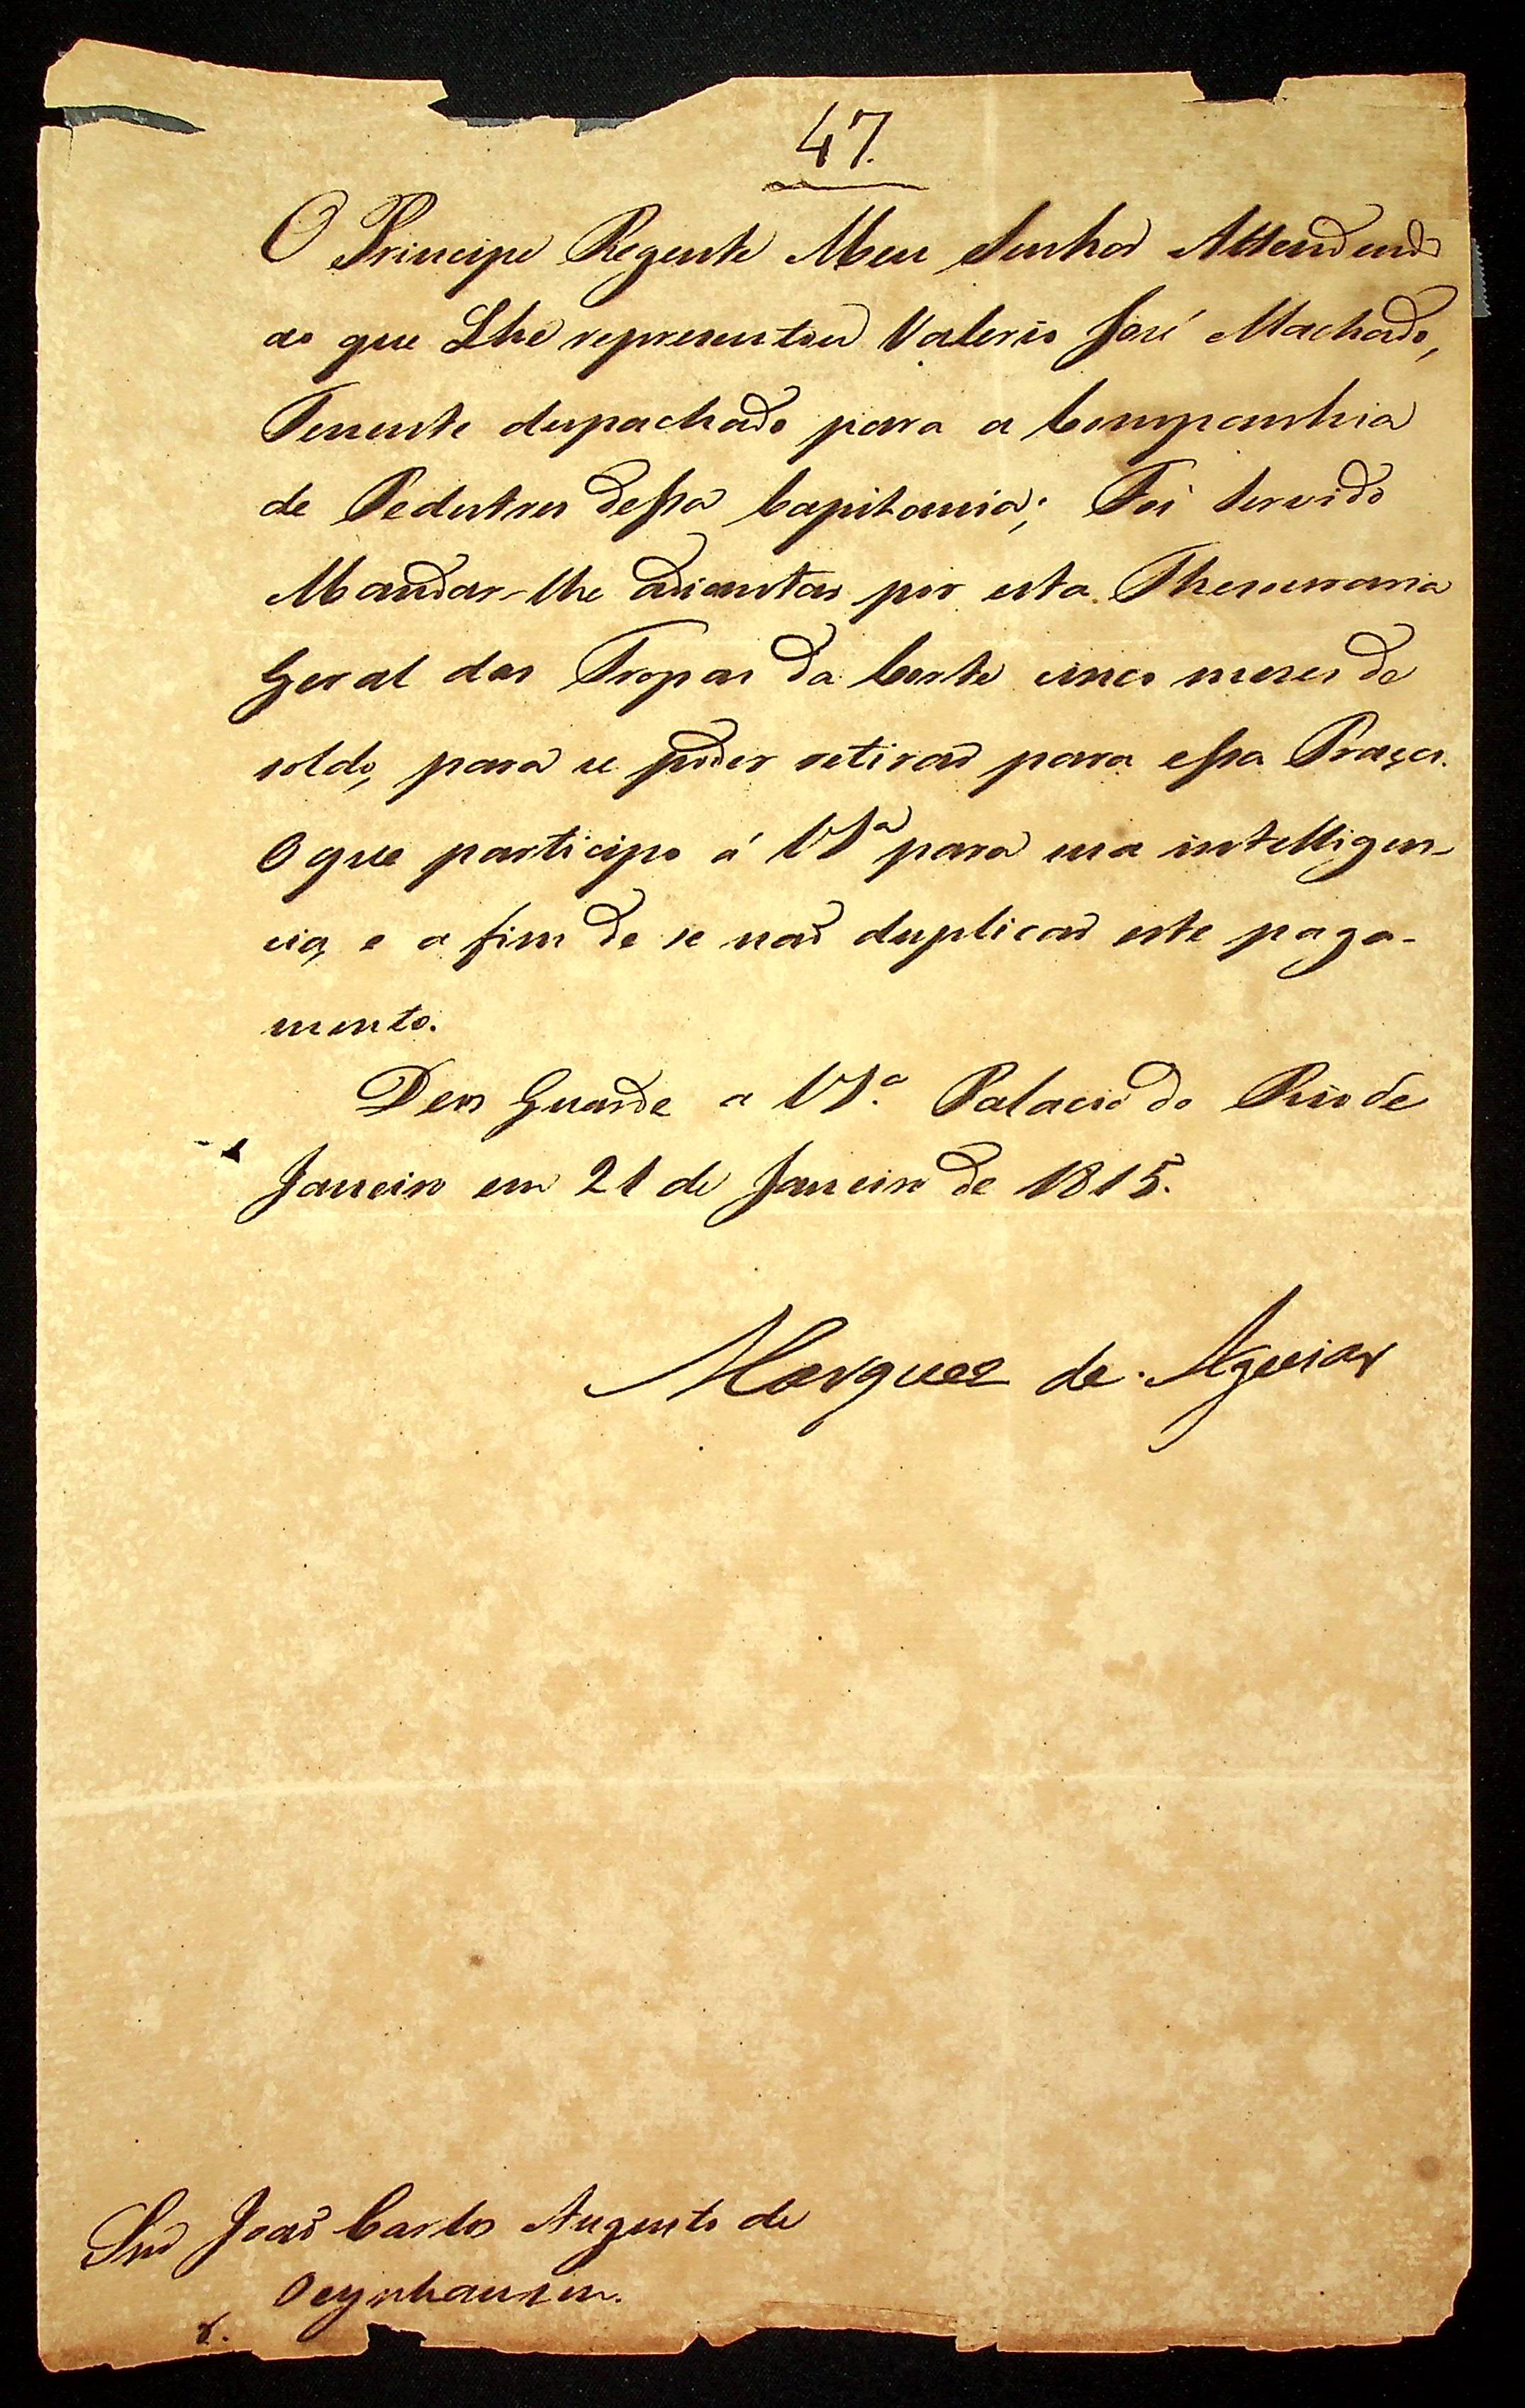 47.
O Principe Regente Meu Senhor Attendendo
ao que Lhe representou Valerio José Machado,
Tenente despachado para a Companhia
de Pedestres dessa Capitania; Foi servido
Mandar-lhe adiantar por esta Thesouraria
Geral das Tropas da Corte cinco mezes de
soldo, para se poder retirar para essa Praça.
O que participo á VSª para sua intelligen-
cia, e a fim de se naõ duplicar este paga-
mento.
Deos Guarde a VSª. Palacio do Rio de
Janeiro em 21 de Janeiro de 1815.
Marquez de Aguiar
Snr João Carlos Augusto de
Oeynhausen.